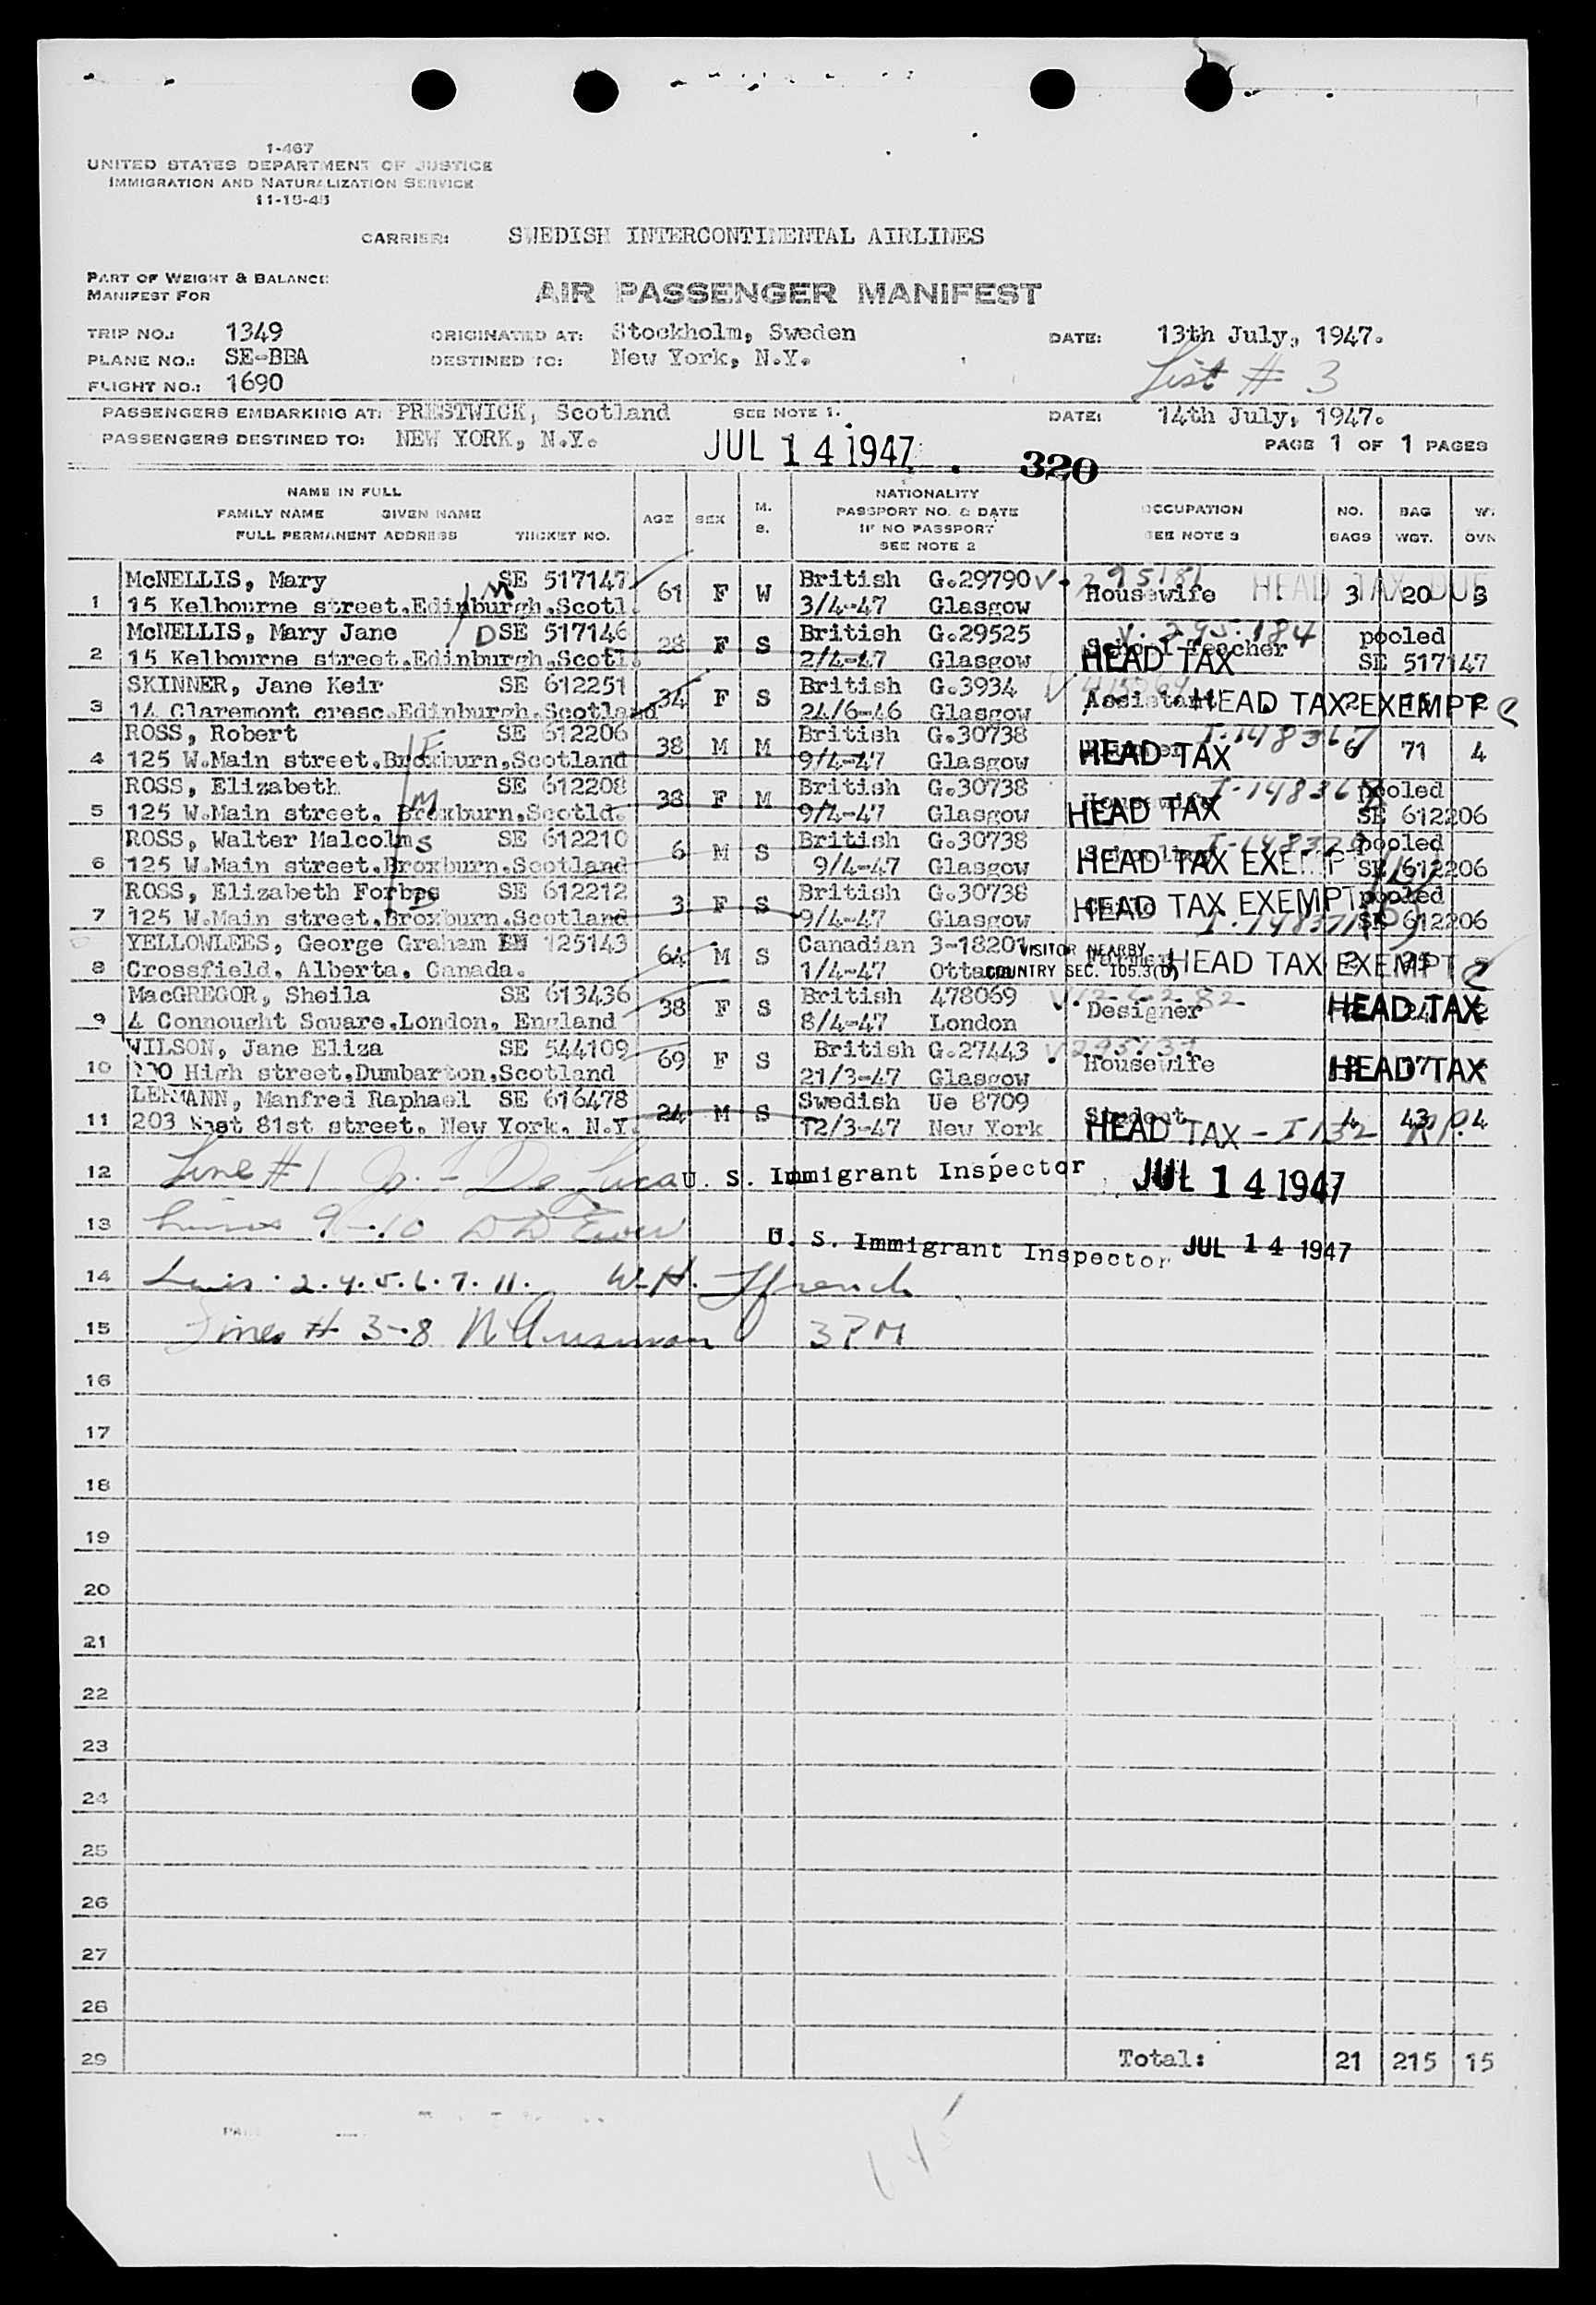 1-467
UNITED STATES DEPARTMENT OF JUSTICE
IMMIGRATION AND NATURALIZATION SERVICE
11-15-45
CARRIER: SWEDISH INTERCONTINENTAL AIRLINES
PART OF WEIGHT & BALANCE
MANIFEST FOR
AIR PASSENGER MANIFEST
TRIP NO.: 1349 ORIGINATED AT: Stockholm, Sweden DATE: 13th July, 1947.
PLANE NO.: SE-BBA DESTINED TO: New York, N.Y.
FLIGHT NO.: 1690 List # 3
PASSENGERS EMBARKING AT: PRESTWICK, Scotland SEE NOTE 1. DATE: 14th July, 1947.
PASSENGERS DESTINED TO: NEW YORK, N.Y. JUL 14 1947 PAGE 1 OF 1 PAGES
320
NAME IN FULL
FAMILY NAME GIVEN NAME
FULL PERMANENT ADDRESS TICKET NO.
AGE SEX M. S.
NATIONALITY
PASSPORT NO. & DATE
IF NO PASSPORT
SEE NOTE 2
OCCUPATION
SEE NOTE 3
NO. BAGS BAG WGT. W. OVN
McNELLIS, Mary SE 517147 British G.29790 V. 295181 HEAD TAX DUE
1 15 Kelbourne street,Edinburgh,Scotl. 61 F W 3/4-47 Glasgow Housewife 3 20 3
M
McNELLIS, Mary Jane D SE 517146 British G.29525 V. 295.184 pooled
2 15 Kelbourne street,Edinburgh,Scotl. 28 F S 2/4-47 Glasgow School Teacher HEAD TAX SE 517147
SKINNER, Jane Keir SE 612251 British G.3934
3 14 Claremont cresc.Edinburgh.Scotland 34 F S 24/6-46 Glasgow Assistant HEAD TAX EXEMPT 2
ROSS, Robert SE 612206 British G.30738 I-148367
4 125 W.Main street,Broxburn,Scotland 38 M M 9/4-47 Glasgow HEAD TAX 6 71 4
F
ROSS, Elizabeth SE 612208 British G.30738 I-148368 pooled
5 125 W.Main street, Broxburn,Scotld. 38 F M 9/4-47 Glasgow Housewife HEAD TAX SE 612206
M
ROSS, Walter Malcolm S SE 612210 British G.30738 pooled
6 125 W.Main street,Broxburn,Scotland 6 M S 9/4-47 Glasgow HEAD TAX EXEMPT SE 612206
ROSS, Elizabeth Forbes SE 612212 British G.30738 pooled
7 125 W.Main street,Broxburn,Scotland 3 F S 9/4-47 Glasgow HEAD TAX EXEMPT I-148371 SE 612206
D
YELLOWLEES, George Graham 125143 Canadian 3-18201 VISITOR NEARBY
8 Crossfield, Alberta, Canada. 64 M S 1/4-47 Ottawa COUNTRY SEC. 105.3(D) HEAD TAX EXEMPT 2
MacGREGOR, Sheila SE 613436 British 478069
9 4 Connought Square,London, England 38 F S 8/4-47 London Designer HEAD TAX 2
WILSON, Jane Eliza SE 544109 British G.27443
10 High street,Dumbarton,Scotland 69 F S 21/3-47 Glasgow Housewife HEAD TAX
LEHMANN, Manfred Raphael SE 616478 Swedish Ue 8709
11 203 East 81st street, New York, N.Y. 24 M S 12/3-47 New York Student HEAD TAX - I 132 4 43 4
12 Line # 1 De Luca U. S. Immigrant Inspector JUL 14 1947
13 Lines 9-10 U. S. Immigrant Inspector JUL 14 1947
14 2.4.5.6.7.11. W.H. Ffrench
15 Lines # 3-8 3 PM
16
17
18
19
20
21
22
23
24
25
26
27
28
29 Total: 21 215 15